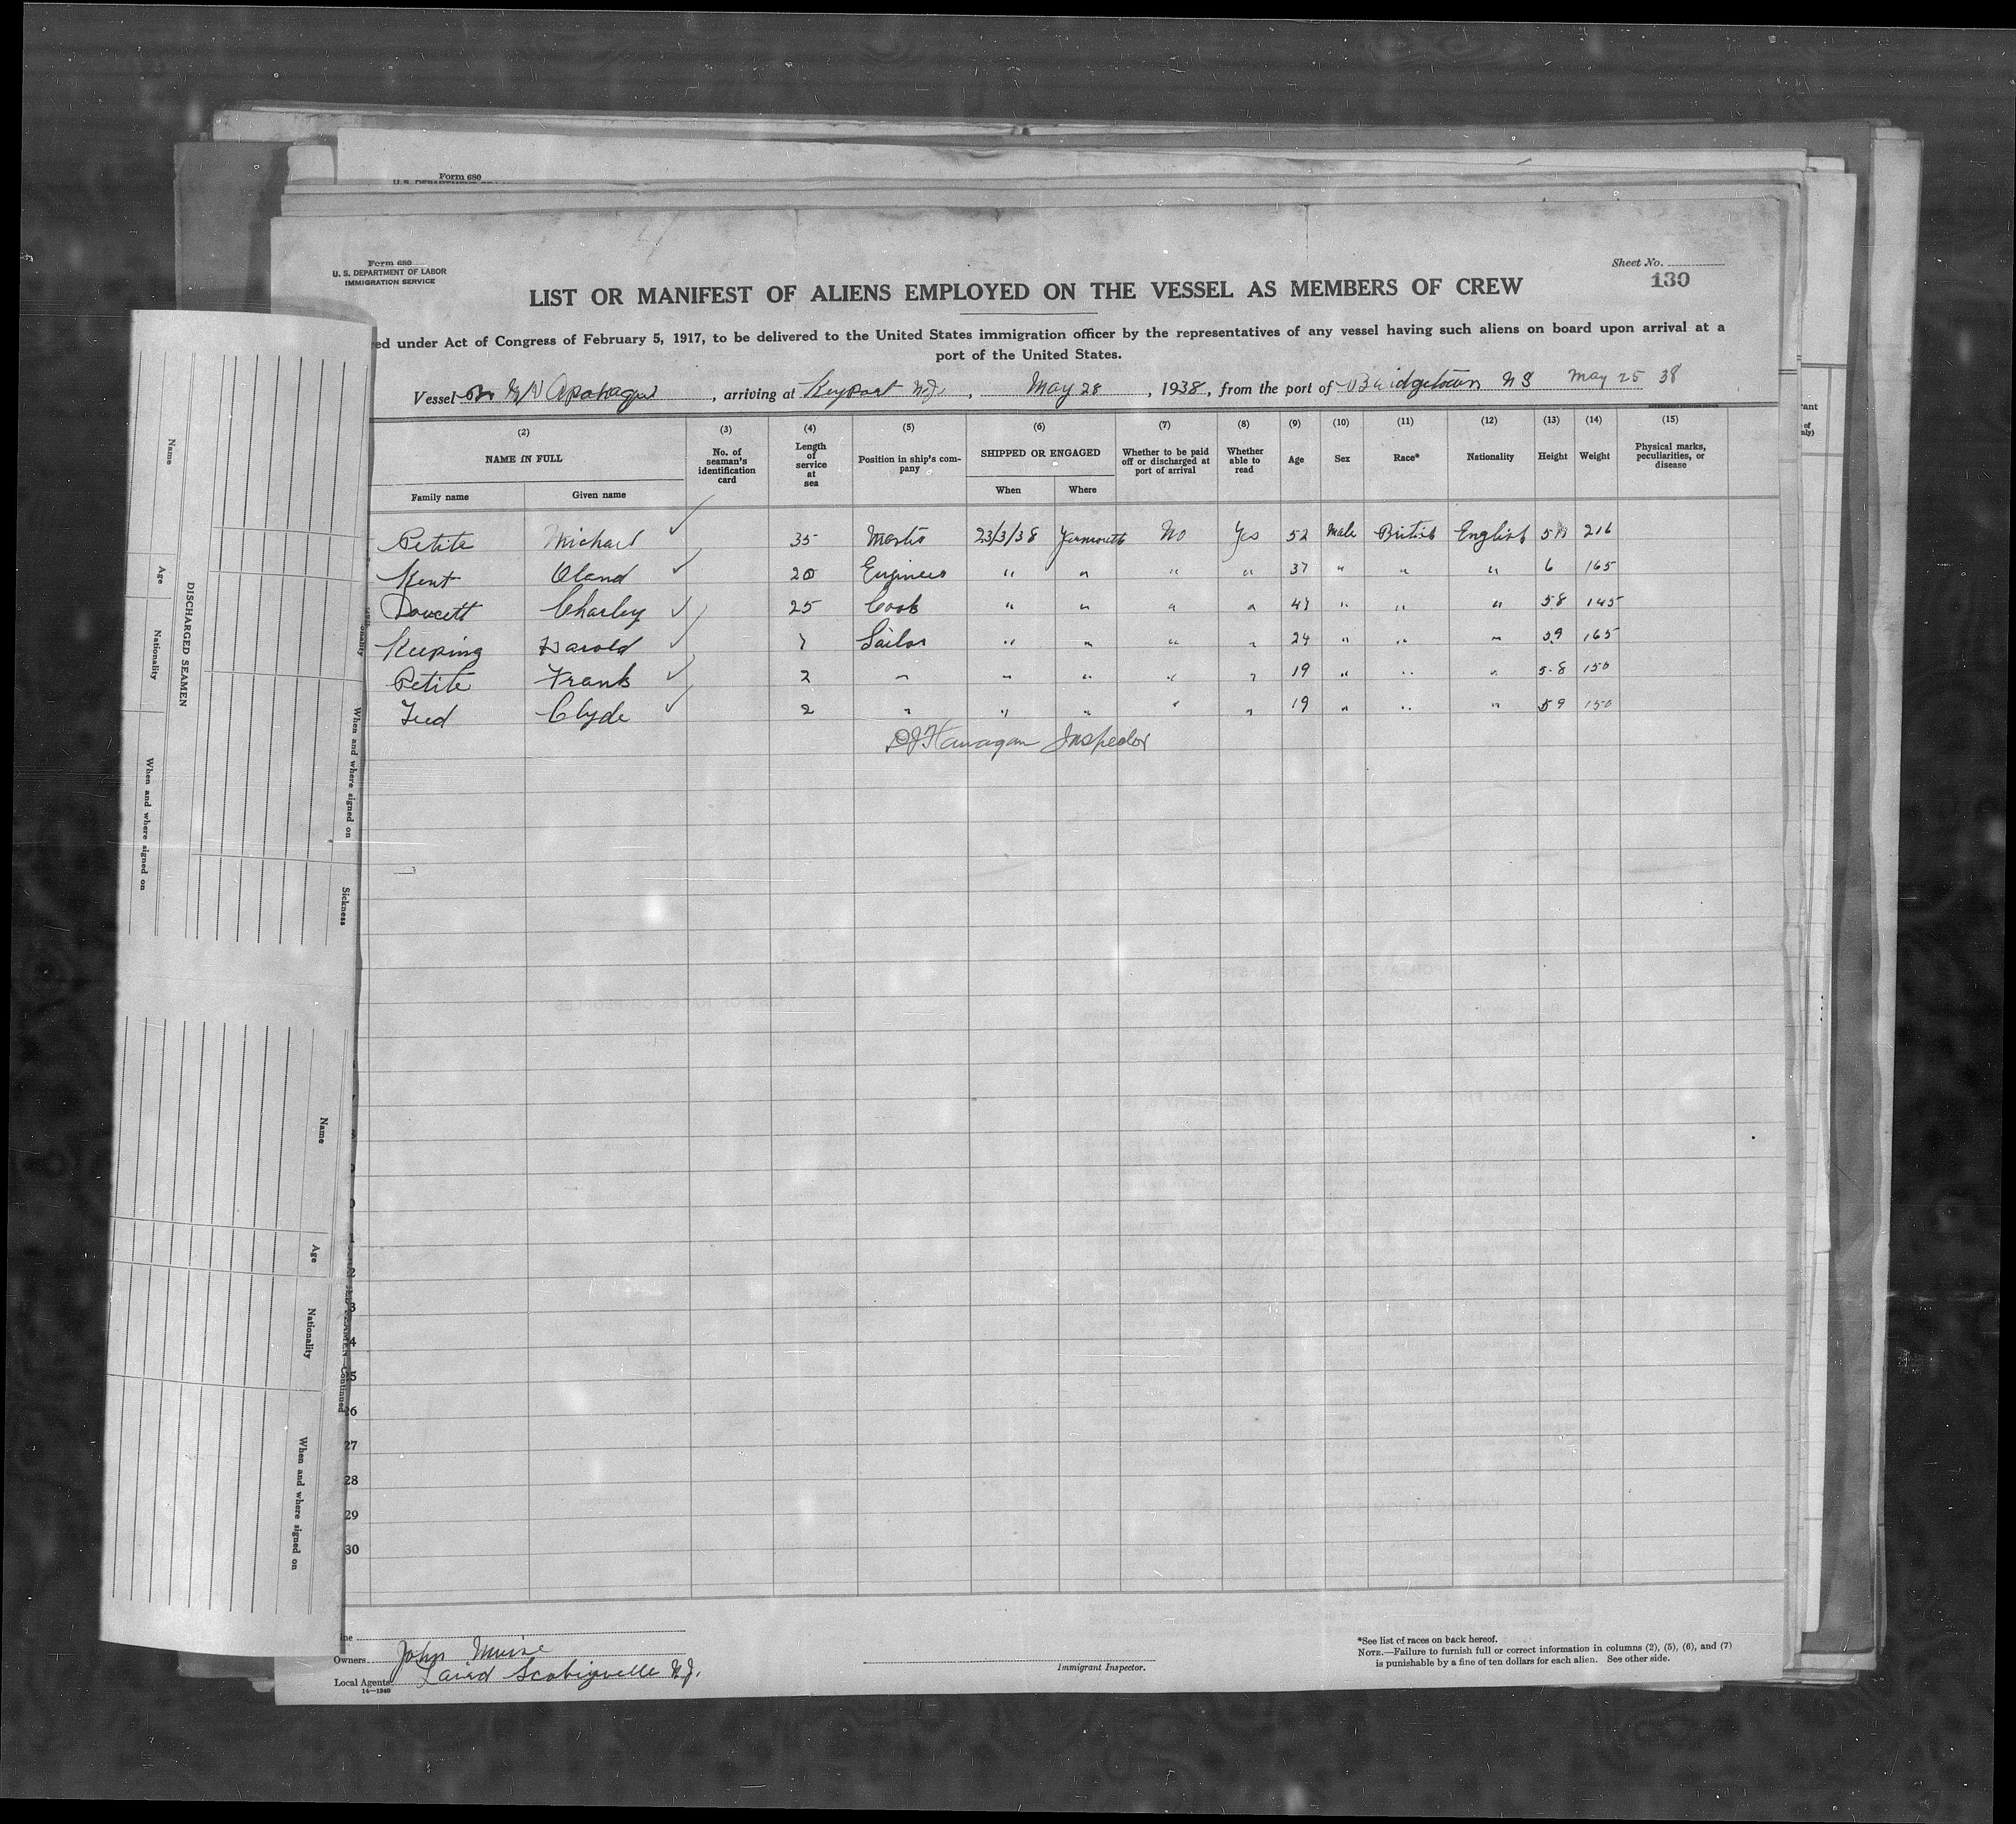 Form 680
Form 680
U. S. DEPARTMENT OF LABOR
IMMIGRATION SERVICE
Sheet No.
130
LIST OR MANIFEST OF ALIENS EMPLOYED ON THE VESSEL AS MEMBERS OF CREW
ed under Act of Congress of February 5, 1917, to be delivered to the United States immigration officer by the representatives of any vessel having such aliens on board upon arrival at a
port of the United States.
Vessel Br M/V Apohaqui, arriving at Keyport N.J., May 28, 1938, from the port of Bridgetown N S May 25 38
(2) (3) (4) (5) (6) (7) (8) (9) (10) (11) (12) (13) (14) (15)
NAME IN FULL No. of seaman's identification card Length of service at sea Position in ship's company SHIPPED OR ENGAGED Whether to be paid off or discharged at port of arrival Whether able to read Age Sex Race* Nationality Height Weight Physical marks, peculiarities, or disease
Family name Given name When Where
Petite Michael ✓ 35 Master 23/3/38 Yarmouth No Yes 52 Male British English 216
Kent Oland ✓ 20 Engineer " " " " 37 " " " 6 165
Doucett Charley ✓ 25 Cook " " " " " " " 5 8 145
Keeping Harold ✓ Sailor " " " " 24 " " " 5.9 165
Petite Frank ✓ 2 " " " " " 19 " " " 5-8 150
Clyde ✓ 2 " " " " " 19 " " " 5 9 150
DJ Flanagan Inspector
Name
Age
Nationality
When and where signed on
DISCHARGED SEAMEN
When and where signed on
Sickness
Name
Age
Nationality
When and where signed on
Continued
26
27
28
29
30
Owners John
Local Agents Laird Scobeyville N.J.
14—1240
Immigrant Inspector.
*See list of races on back hereof.
NOTE.—Failure to furnish full or correct information in columns (2), (5), (6), and (7)
is punishable by a fine of ten dollars for each alien. See other side.